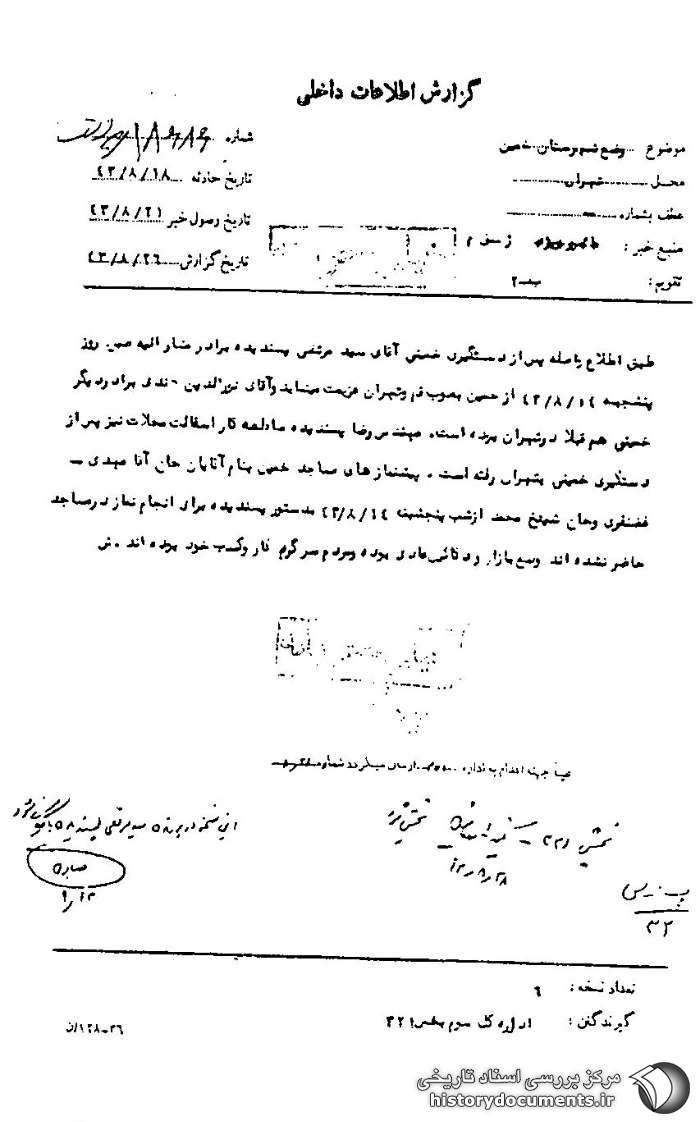 گزارش اطلاعات داخلی
موضوع وضع شهرستان خمین
شماره
محل تهران
تاریخ حادثه ۴۳/۸/۱۸
عطف بشماره
تاریخ وصول خبر ۴۳/۸/۲۱
منبع خبر :
تاریخ گزارش ۴۳/۸/۲۶
تقویم : ب-۲
طبق اطلاع واصله پس از دستگیری خمینی آقای سید مرتضی پسندیده برادر مشار الیه صبح روز
پنجشنبه ۴۳/۸/۱۴ از خمین بصوب قم وتهران عزیمت مینماید وآقای نورالدین هندی برادر دیگر
خمینی هم قبلا درتهران بوده است. مهندس رضا پسندیده مقاطعه کار اسفالت محلات نیز پس از
دستگیری خمینی بتهران رفته است . پیشنماز های مساجد خمین بنام آقایان حاج آقا مهدی –
غضنفری وحاج شیخ محمد ازشب پنجشنبه ۴۳/۸/۱۴ بدستور پسندیده برای انجام نماز درمساجد
حاضر نشده اند وضع بازار و دکاکین عادی بوده ومردم سرگرم کار وکسب خود بوده اند . ش
عینا جهت اقدام به اداره ارسال میگردد شماره
بخش ۳۲۱
۴۳/۸/۲۸
این نسخه در پرونده سید مرتضی پسندیده بایگانی شود
صابره
۳۲
تعداد نسخه : ۶
گیرندگان : اداره کل سوم بخش ۳۲۱
۳۶-۱۲۸/ن
مرکز بررسی اسناد تاریخی
historydocuments.ir